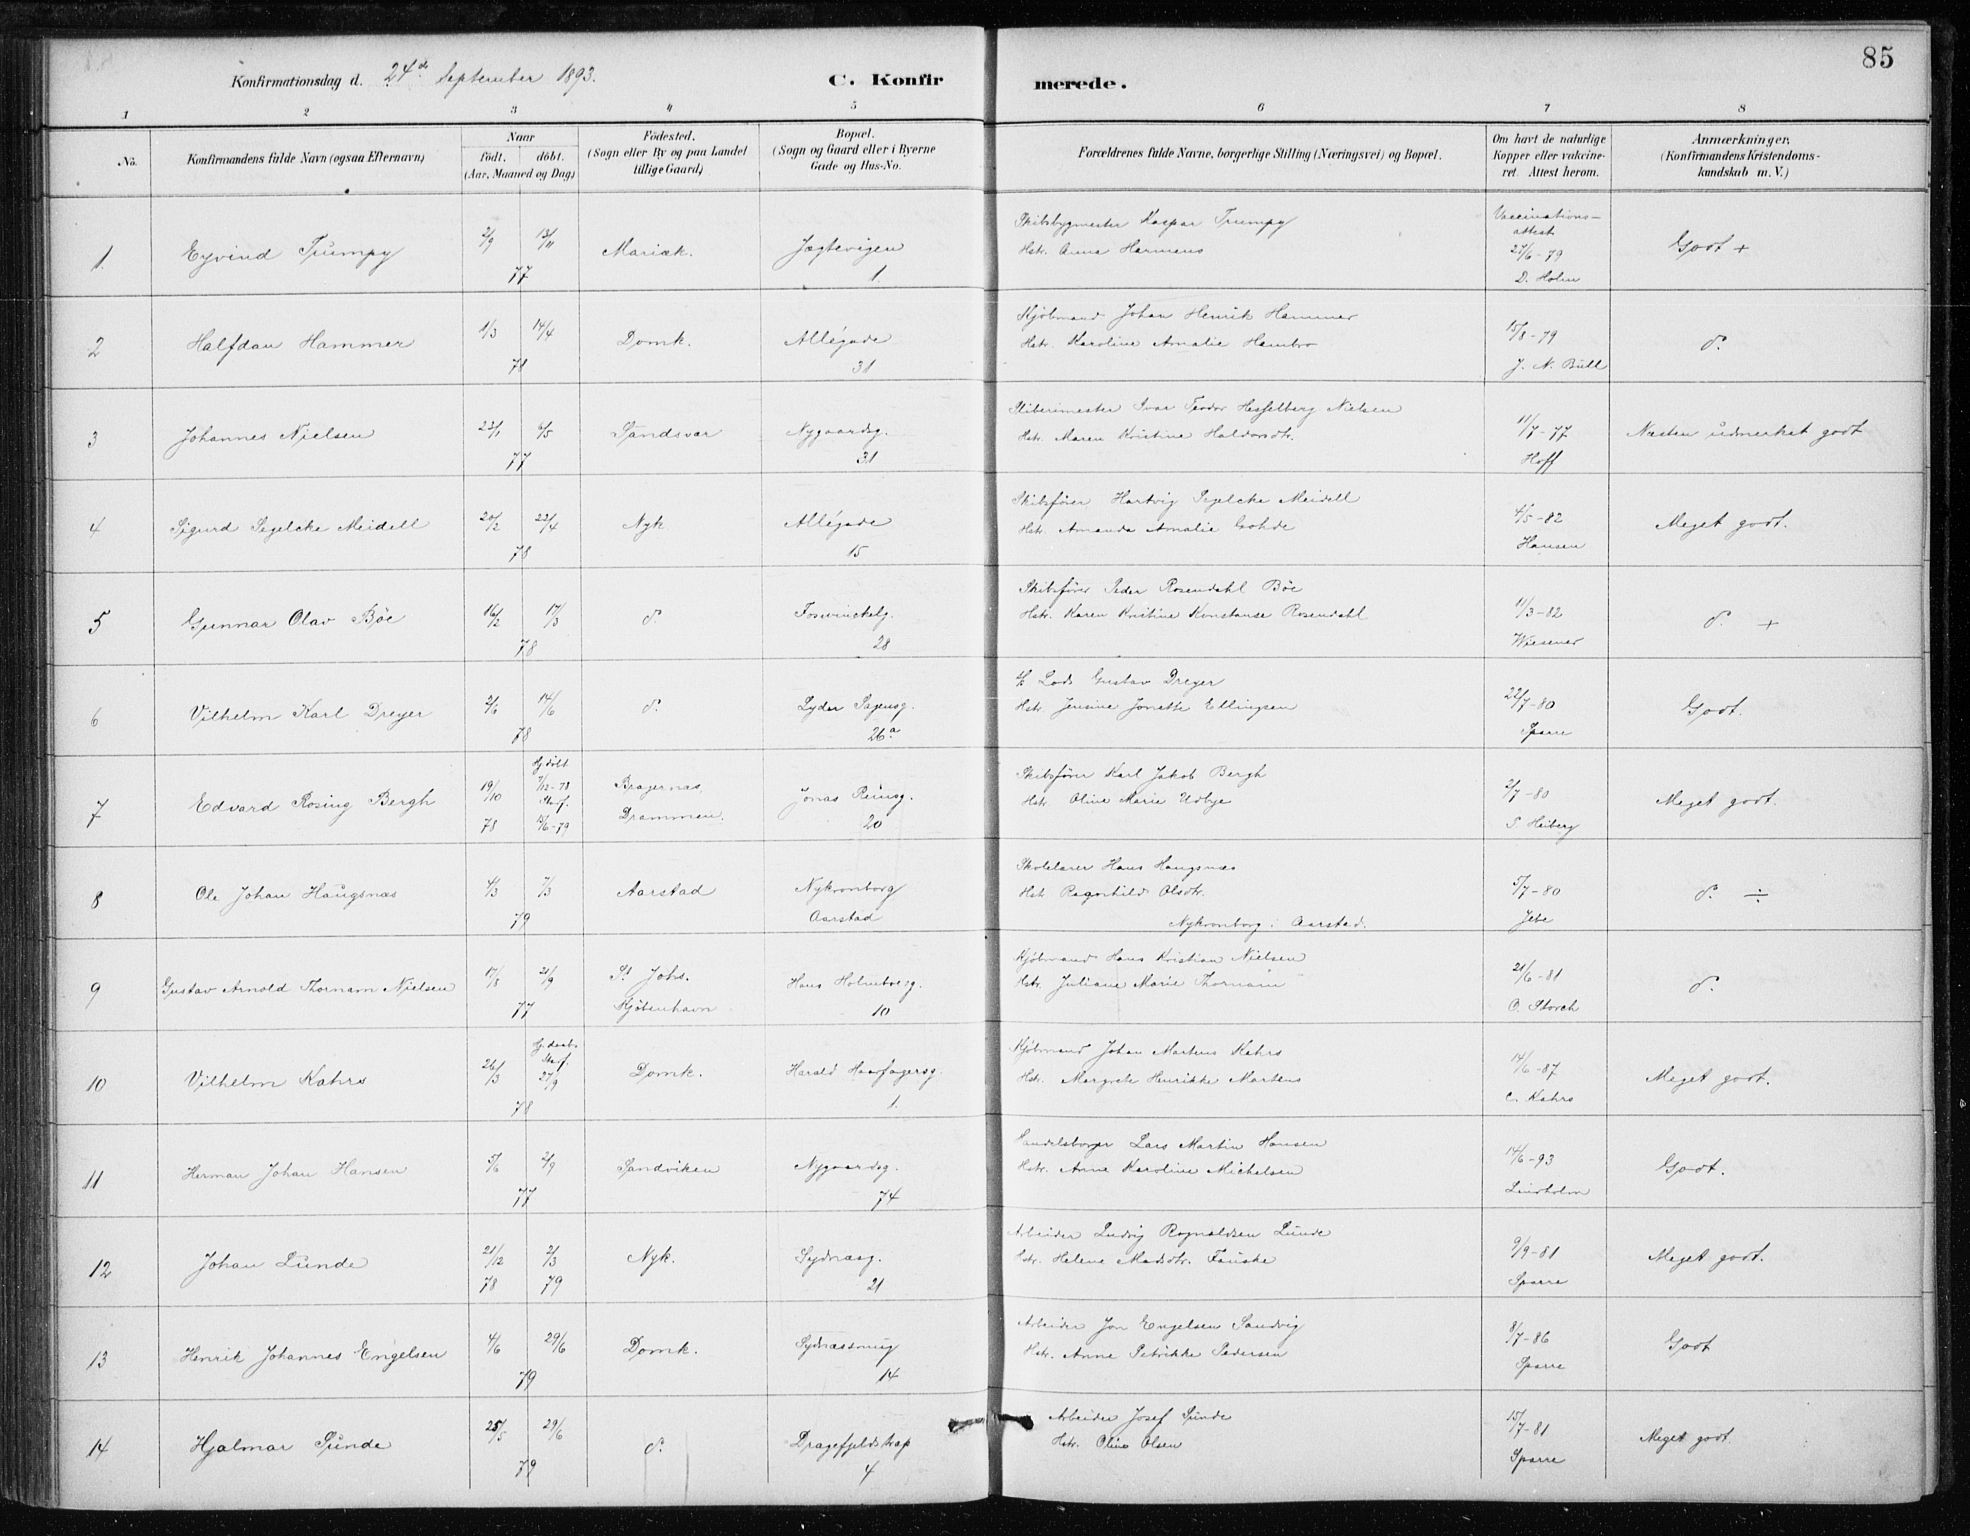 85
Konfirmationsdag d. 24de September 1893.
C. Konfirmerede.
1 2 3 4 5 6 7 8
No.
Konfirmandens fulde Navn (ogsaa Efternavn)
Naar
födt. döbt.
(Aar, Maaned og Dag)
Födested.
(Sogn eller By og paa Landet
tillige Gaard)
Bopæl.
(Sogn og Gaard eller i Byerne
Gade og Hus-No.
Forældrenes fulde Navne, borgerlige Stilling (Næringsvei) og Bopæl.
Om havt de naturlige
Kopper eller vakcine-
ret. Attest herom.
Anmærkninger.
(Konfirmandens Kristendoms-
kundskab m. V.)
1 Eyvind Trumpy 2/9 13/11 77 Mariæk. Jægtevigen 1.
Skibsbygmester Kaspar Trumpy
Hstr. Anna Harmens
Vaccinations-
attest
27/6-79
D. Holm
Godt +
2 Halfdan Hammer 1/3 14/4 78 Domk. Allégade 31
Kjöbmand Johan Henrik Hammer
Hstr. Karoline Amalie Hambro
15/8-79
J. N. Bull
d.
3 Johannes Nielsen 23/1 6/5 77 Sandsvær Nygaardsg. 31
Sliberimester Ivar Teodor Hesselberg Nielsen
Hstr. Maren Kristine Haldorsdtr.
11/7-77
Hoff
Næsten udmerket godt
4 Sigurd Segelcke Meidell 20/2 22/4 78 Nyk Allégade 15
Skibsförer Hartvig Segelcke Meidell
Hstr. Amanda Amalie Rohde
4/5-82
Hansen
Meget godt.
5 Gunnar Olav Böe 16/2 17/3 78 d. Fosvinckelg. 28
Skibsförer Peder Rosendahl Böe
Hstr. Karen Kristine Konstanse Rosendahl
11/3-82
Wiesener
d. +
6 Vilhelm Karl Dreyer 2/6 14/6 78 d. Lyder Sagensg. 26a
Lods Gustav Dreyer
Hstr. Jensine Jonette Ellingsen
22/7-80
Sparre
Godt.
7 Edvard Rosing Bergh 19/10 78
Hj.döbt
7/12-78
Stadf.
15/6-79
Bragernæs, Drammen. Jonas Reinsg. 20
Skibsförer Karl Jakob Bergh
Hstr. Oline Marie Udbye
2/7-80
S. Heiberg
Meget godt.
8 Ole Johan Haugsnæs 4/3 7/3 79 Aarstad Nykronborg Aarstad
Skolelærer Hans Haugsnæs
Hstr. Ragnhild Olsdtr.
Nykronborg i Aarstad.
5/7-80
Jebe
d. ÷
9 Gustav Arnold Thornam Nielsen 17/8 21/9 77 St Johs. Kjöbenhavn Hans Holmboesg. 10
Kjöbmand Hans Kristian Nielsen
Hstr. Juliane Marie Thornam
21/6-81
O. Storch
d.
10 Vilhelm Kahrs 26/3
Hj.daab
Stadf.
27/9
78 Domk. Harald Haarfagersg. 1.
Kjöbmand Johan Martens Kahrs
Hstr. Margrete Henrikke Martens
14/6-87
C. Kahrs
Meget godt.
11 Herman Johan Hansen 5/6 2/9 77 Sandviken Nygaardsg. 74
Handelsborger Lars Martin Hansen
Hstr. Anne Karoline Michelsen
14/6-93
Lindholm
Godt.
12 Johan Lunde 21/12 78 2/3 79 Nyk. Sydnæsg. 21
Arbeider Ludvig Ragnaldsen Lunde
Hstr. Helene Madsdtr. Fauske
9/9-81
Sparre
Meget godt.
13 Henrik Johannes Engelsen 4/6 29/6 79 Domk. Sydnæssmug 14
Arbeider Jon Engelsen Sandvig
Hstr. Anne Petrikke Pedersen
8/7-86
Sparre
Godt
14 Hjalmar Sunde 25/5 29/6 79 d. Dragefjeldstrap 4
Arbeider Josef Sunde
Hstr. Oline Olsen
15/7-81
Sparre
Meget godt.